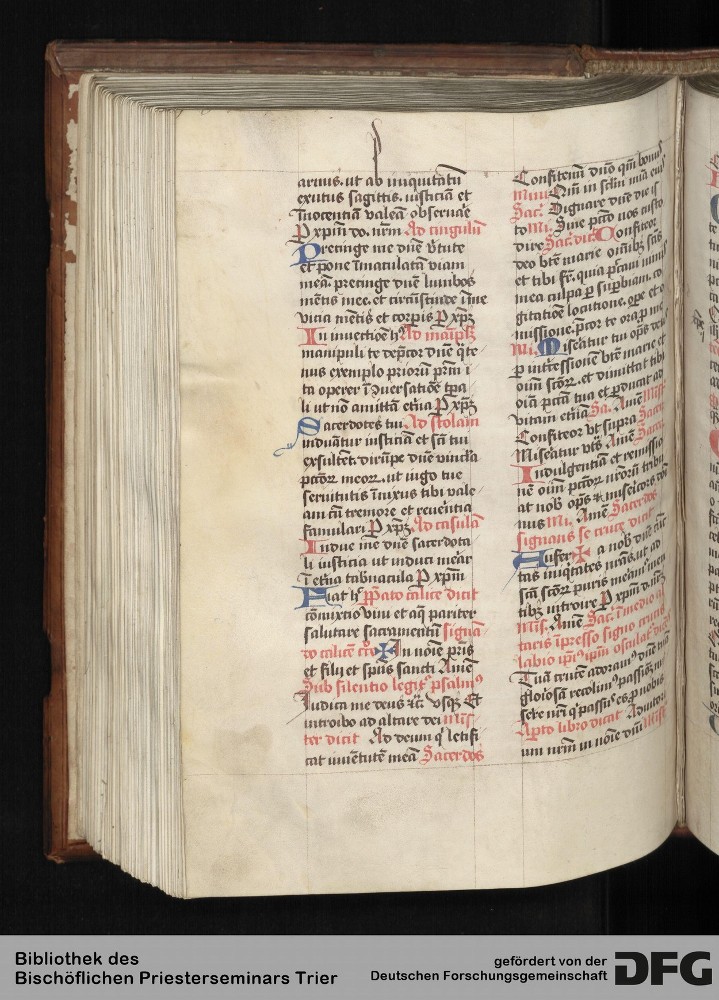 armis. ut ab iniquitatū
exutus sagittis. iusticiā et
īnocentiā valeā obseruare
P xp̄m do. nr̄m Ad cingulū
Precinge me dn̄e v̾tute
et pone īmaculatā viam
meā. precinge dn̄e lumbos
mētis mee. et circūscinde
vicia mētis et corpis P xp̄
Ad
manipuli te dep̄cor dn̄e
nus exemplo priorū pr̄m i
ta operer
li ut nō amittā et̾na P xp̄
Sacerdotes tui Ad stolam
induātur iusticiā et scī tui
exsultēt. dirūpe dn̄e vincla
pctōr meoꝝ. ut iugo tue
seruitutis īnixus tibi vale
am cū tremore et reuerētia
famulari P xp̄ Ad casulā
Indue me dn̄e sacerdota
li iusticia ut induci mear̄
ī et̾na tab̾nacula P xp̄m
Fiat Pp̄ato calice dicit
cōmixtio vini et aq̄ pariter
salutare sacramentū signā
do calicē ✠ In noīe pr̄is
et filij et sp̄us sancti Amē
Sub silentio legit psalmꝰ
Iudica me deus Vsqꝫ Et
introibo ad altare dei Mīs
ter dicit Ad deum q̄ letifi
cat iuuētutē meā Sacerdos
Confitemī dn̄o qm̄ bonus
Mīnis Qm̄ in sclm̄ mīa eius
Sac. Dignare dn̄e die is
to Mi. Sine pctō nos custo
dire Sac. dic. Confiteor
deo btē marie oīnibꝫ scīs
et tibi fr̄. quia peccaui nimis
mea culpa p sup̄biam. co
gitatiōe locutione. ope et o
missione. p̄cor te ora p me
Mi. Miseatur tui op̄s deus
p intercessionē btē marie et
oīm scōꝝ. et dimittat tibi
oīa pctā tua et pducat ad
vitam et̾na Sa. Amē Mist
Confiteor vt supra Sacer
Miseatur vt s̄ Amē Sacer
Indulgentiā et remissio
nē oīm pctōꝝ nr̄orū tribu
at nob̄ op̄s & misericors do
nus Mi. Amē Sacerdos
signans se cruce dicit
Aufer ✠ a nob̄ dn̄e cūc
tas iniqtates nr̄as ut ad
scā scōꝝ puris meām̾ men
tibꝫ introire P xp̄m d.
Mis. Amē Sac. ī medio al
taris īpresso signo crucis
labio ip̄m osculat̾ dicit
Tuā crucē adoramꝰ dn̄e tuā
gloiosā recolimꝰ passiōꝫ mi
sere nr̄i q̄ passus es p nobis
Apto libro dicat Adiutori
um nr̄m in noīe dn̄i Mist
Bibliothek des
Bischöflichen Priesterseminars Trier
gefördert von der
Deutschen Forschungsgemeinschaft
DFG